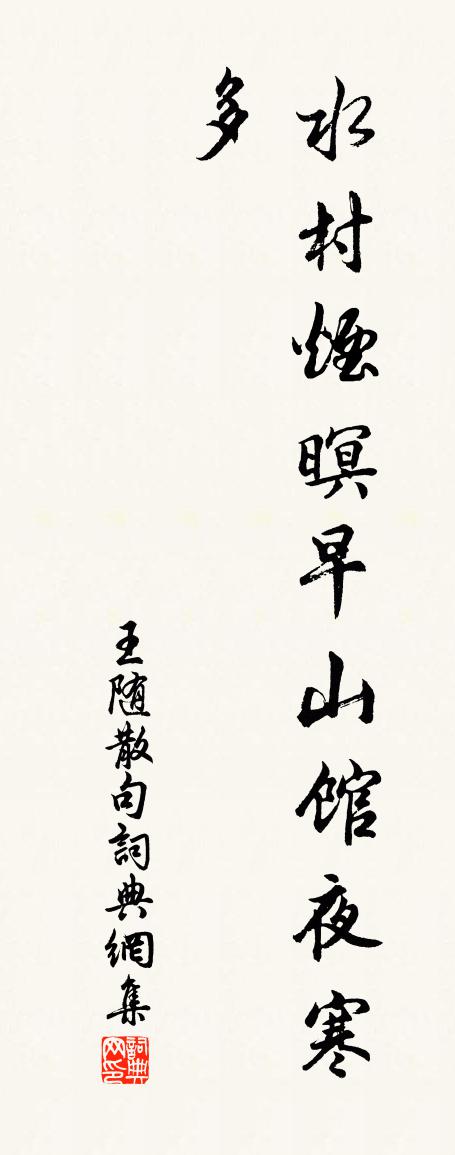 水村煙暝早山館夜寒
多
王随散句詞典網集
詞典网印